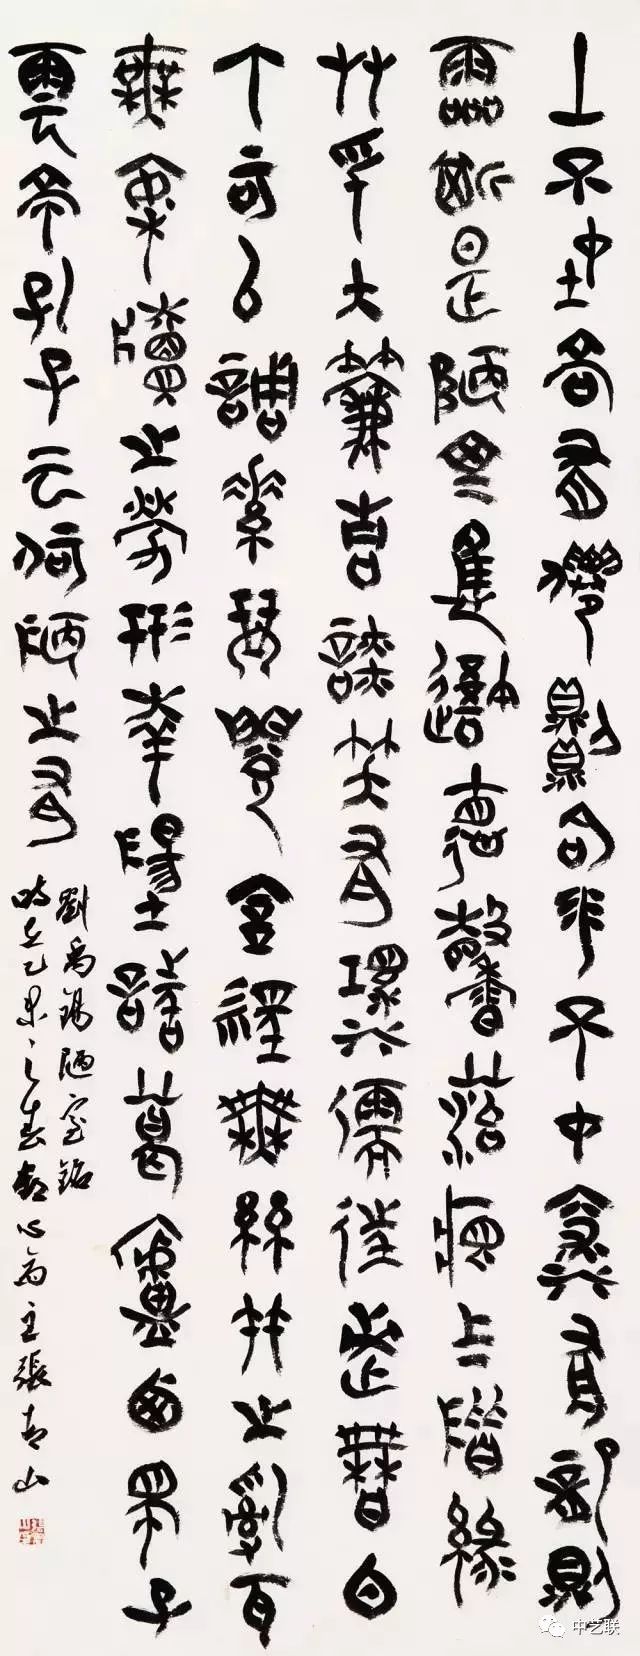 山不在高有仙則名水不在深有龍則
靈斯是陋室惟吾德馨苔痕上階綠
艸色入簾青談笑有鴻儒往來無白
丁可以調素琴閱金經無絲竹之亂耳
無案牘之勞形南陽諸葛廬西蜀子
雲亭孔子云何陋之有
劉禹錫陋室銘
時在乙未之春心齋主張青山
中艺联